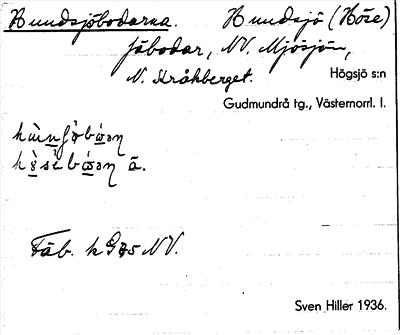 Hundsjöbodarna. Hundsjö (Höse)
fäbodar, NV. Mjösjön,
N. Kråkberget. Högsjö s:n
Gudmundrå tg., Västernorrl. l.
ä.
Fäb. k G35 NV.
Sven Hiller 1936.